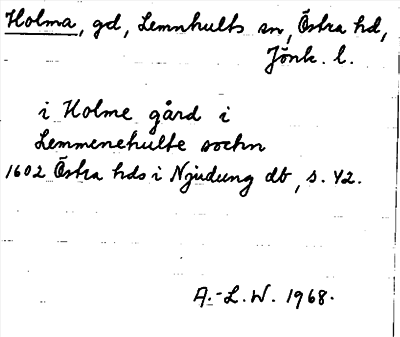 Holma, gd, Lemnhults sn, Östra hd,
Jönk. l.
i Holme gård i
Lemmenehulte sochn
1602 Östra hds i Njudung db, s. 42.
A.-L.W. 1968.